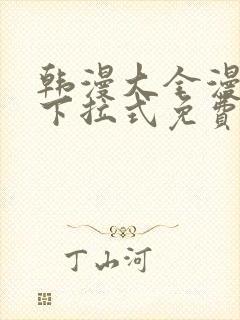 韩漫大全漫
下拉式免费
丁山河